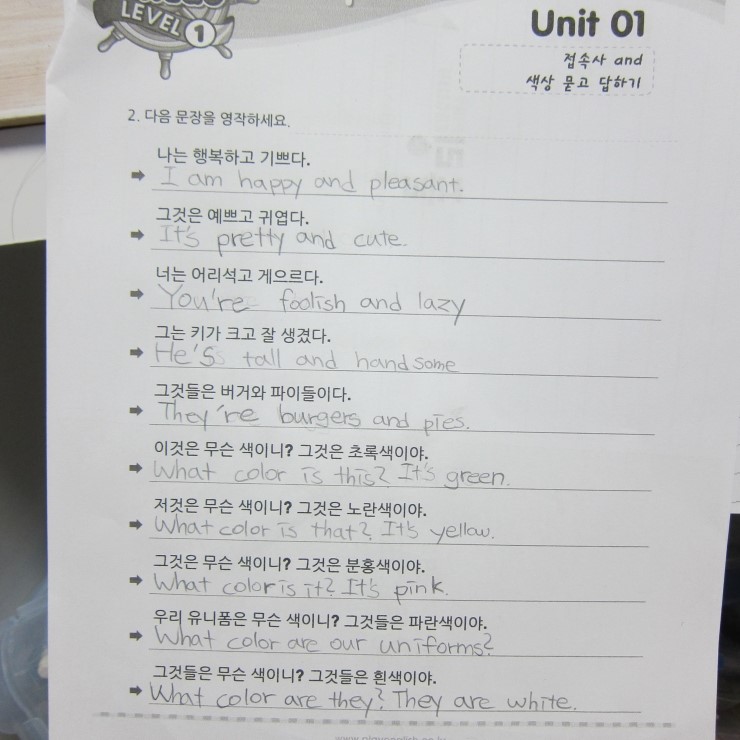 LEVEL 1
Unit 01
접속사 and
색상 묻고 답하기
2. 다음 문장을 영작하세요.
나는 행복하고 기쁘다.
➡ I am happy and pleasant.
그것은 예쁘고 귀엽다.
➡ It's pretty and cute.
너는 어리석고 게으르다.
➡ You're foolish and lazy
그는 키가 크고 잘 생겼다.
➡ He's tall and handsome
그것들은 버거와 파이들이다.
➡ They're burgers and pies.
이것은 무슨 색이니? 그것은 초록색이야.
➡ What color is this? It's green.
저것은 무슨 색이니? 그것은 노란색이야.
➡ What color is that? It's yellow.
그것은 무슨 색이니? 그것은 분홍색이야.
➡ What color is it? It's pink.
우리 유니폼은 무슨 색이니? 그것들은 파란색이야.
➡ What color are our uniforms?
그것들은 무슨 색이니? 그것들은 흰색이야.
➡ What color are they? They are white.